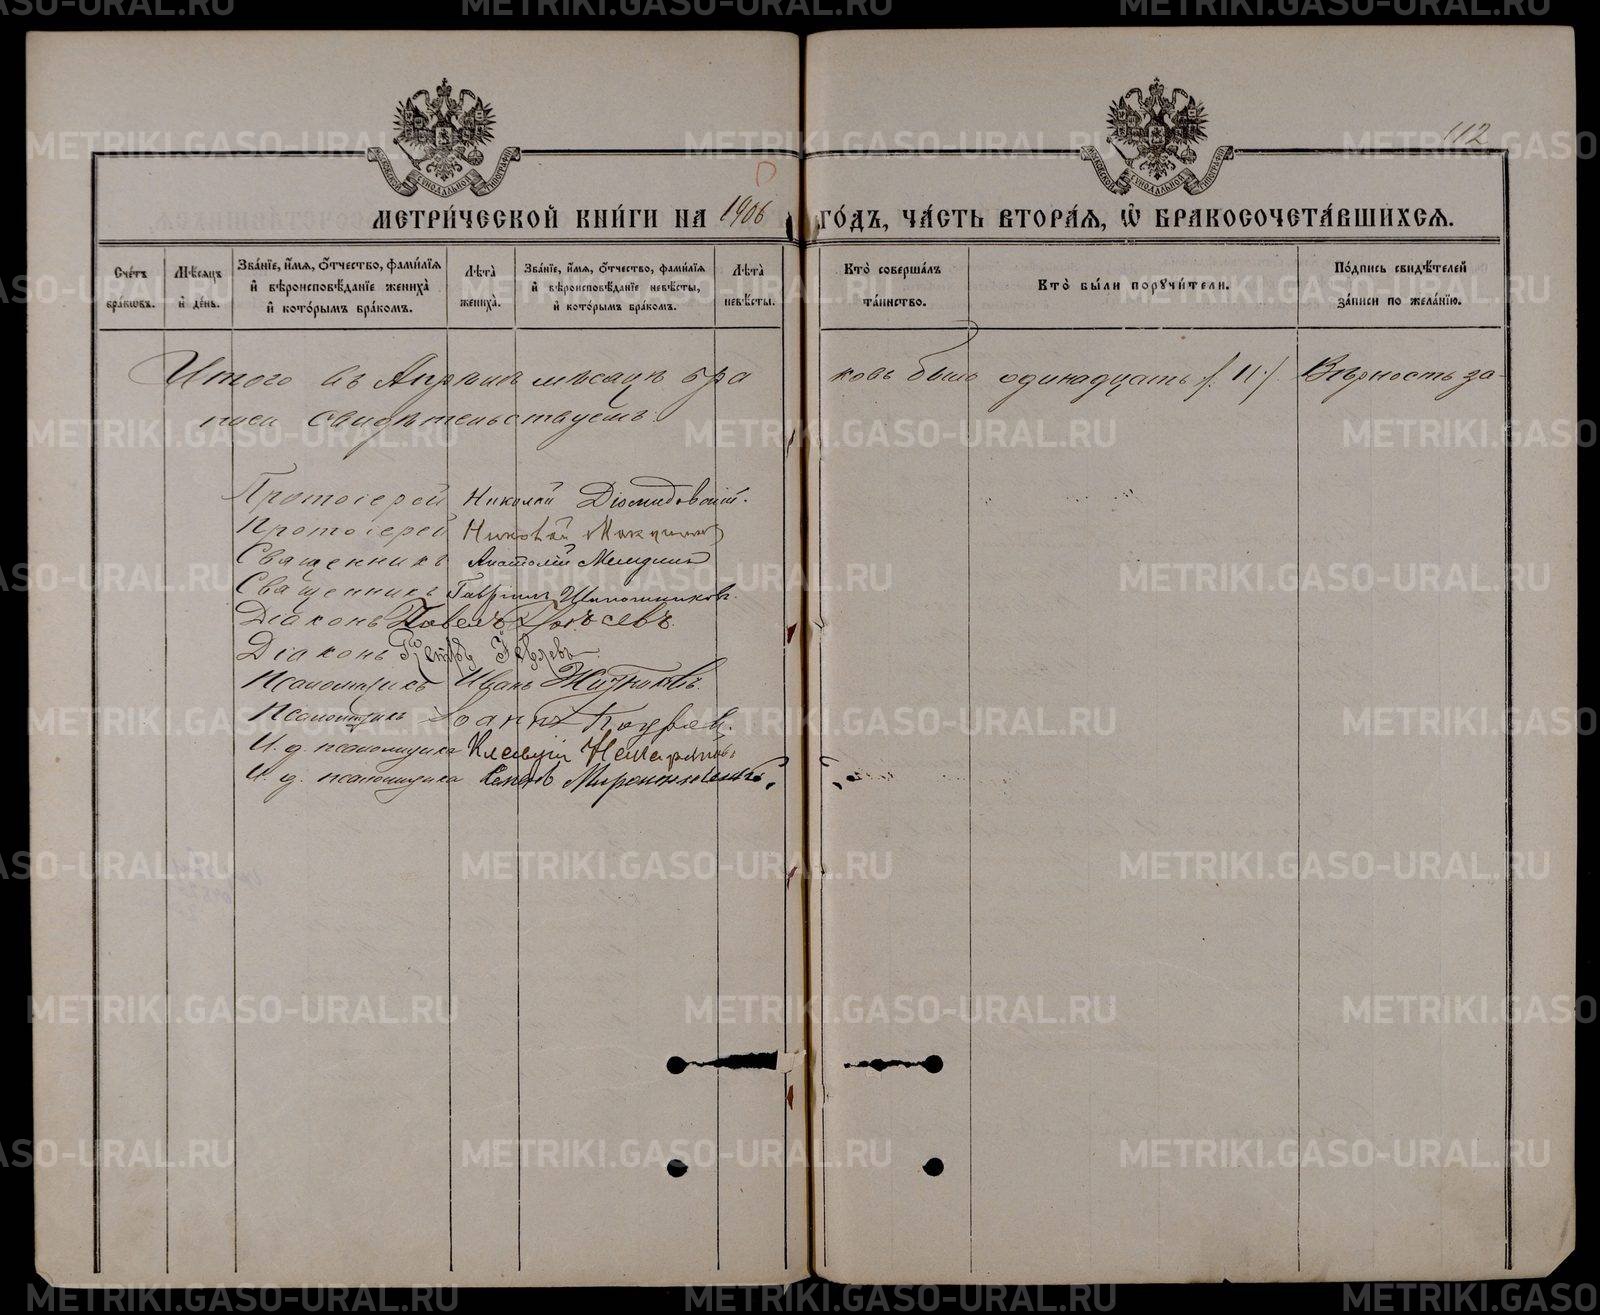 METRIKI.GASO-URAL.RU
112
МЕТРИ́ЧЕСКОЙ КНИ́ГИ НА 1906 ГО́ДЪ, ЧА́СТЬ ВТОРА́Я, Ѡ҆ БРАКОСОЧЕТА́ВШИХСЯ.
Сче́тъ бра́ковъ.
Мѣ́сяцъ и҆ де́нь.
Зва́нїе, и҆́мя, ѻ҆́тчество, фами́лїя и҆ вѣроисповѣ́данїе жениха̀ и҆ кото́рымъ бра́комъ.
Лѣ́та жениха̀.
Зва́нїе, и҆́мя, ѻ҆́тчество, фами́лїя и҆ вѣроисповѣ́данїе невѣ́сты, и҆ кото́рымъ бра́комъ.
Лѣ́та невѣ́сты.
Кто̀ соверша́лъ та́инство.
Кто̀ бы́ли порꙋчи́тели.
По́дпись свидѣ́телей за́писи по жела́нїю.
Итого въ Апрѣлѣ мѣсяцѣ бра ковъ было одинадцать /: 11 :/. Вѣрность за-
писи свидѣтельствуемъ:
Протоіерей Николай Діомидовскій.
Протоіерей Николай
Священникъ Анатолій
Священникъ Гавріилъ Шапошниковъ.
Діаконъ Павелъ
Діаконъ Петръ
Псаломщикъ Иванъ
Псаломщикъ Іоаннъ
И. д. псаломщика
И. д. псаломщика